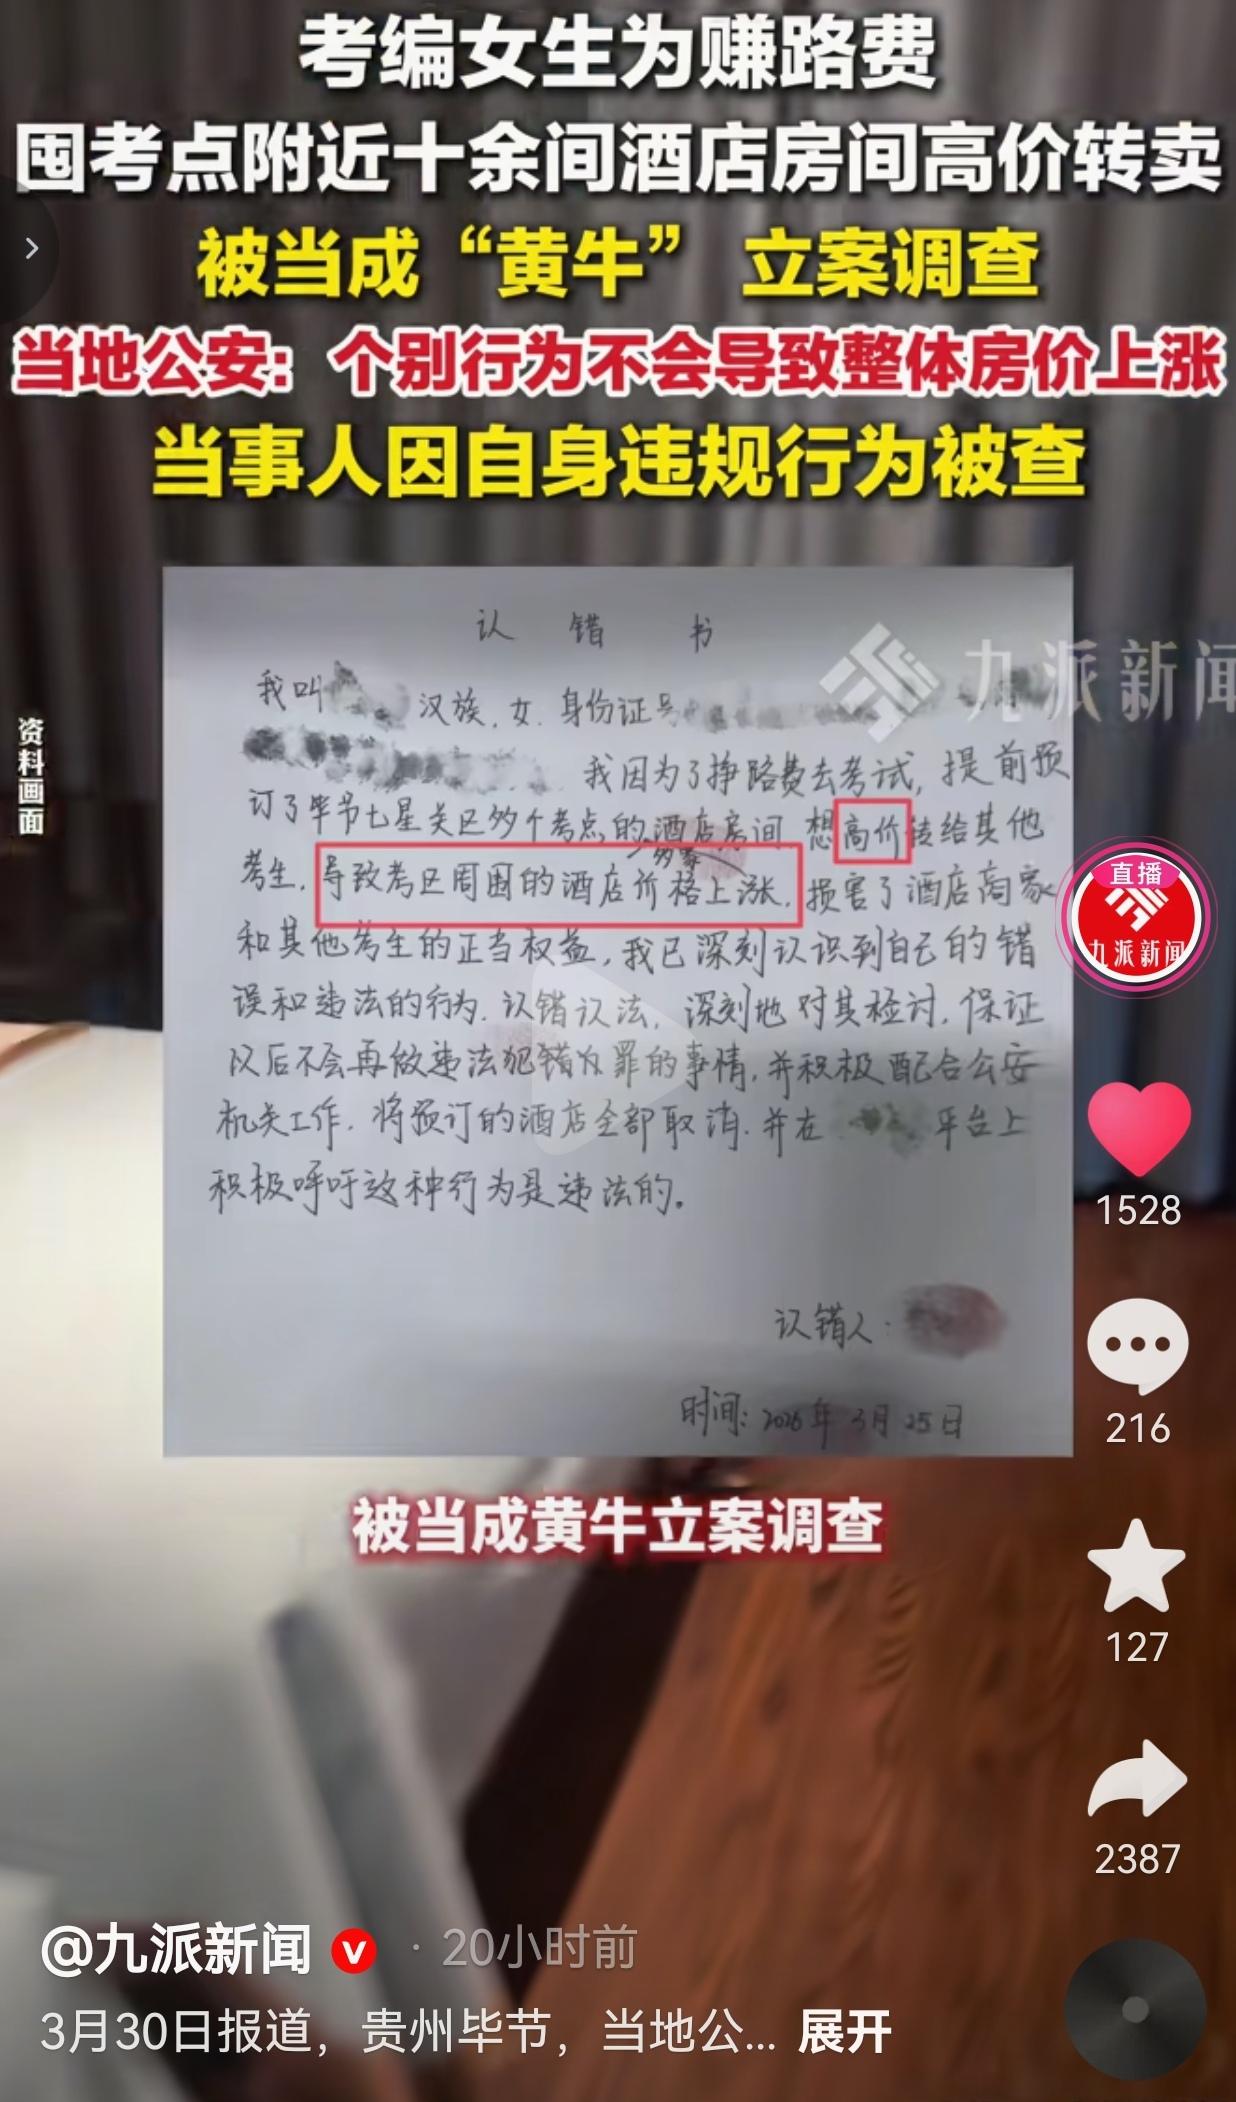 考编女生为赚路费
囤考点附近十余间酒店房间高价转卖
被当成“黄牛” 立案调查
当地公安：个别行为不会导致整体房价上涨
当事人因自身违规行为被查
资料画面
九派新闻
认 错 书
我叫 汉族，女，身份证号
我因为了挣路费去考试，提前预
订了毕节七星关区多个考点的酒店房间，想高价转给其他
多家
考生，导致考区周围的酒店价格上涨，损害了酒店商家
和其他考生的正当权益，我已深刻认识到自己的错
误和违法的行为，认错认法，深刻地对其检讨，保证
以后不会再做违法犯罪的事情，并积极配合公安
机关工作，将预订的酒店全部取消，并在 平台上
积极呼吁这种行为是违法的。
认错人：
时间：2026年3月25日
直播
九派新闻
1528
216
127
2387
被当成黄牛立案调查
@九派新闻 · 20小时前
3月30日报道，贵州毕节，当地公... 展开